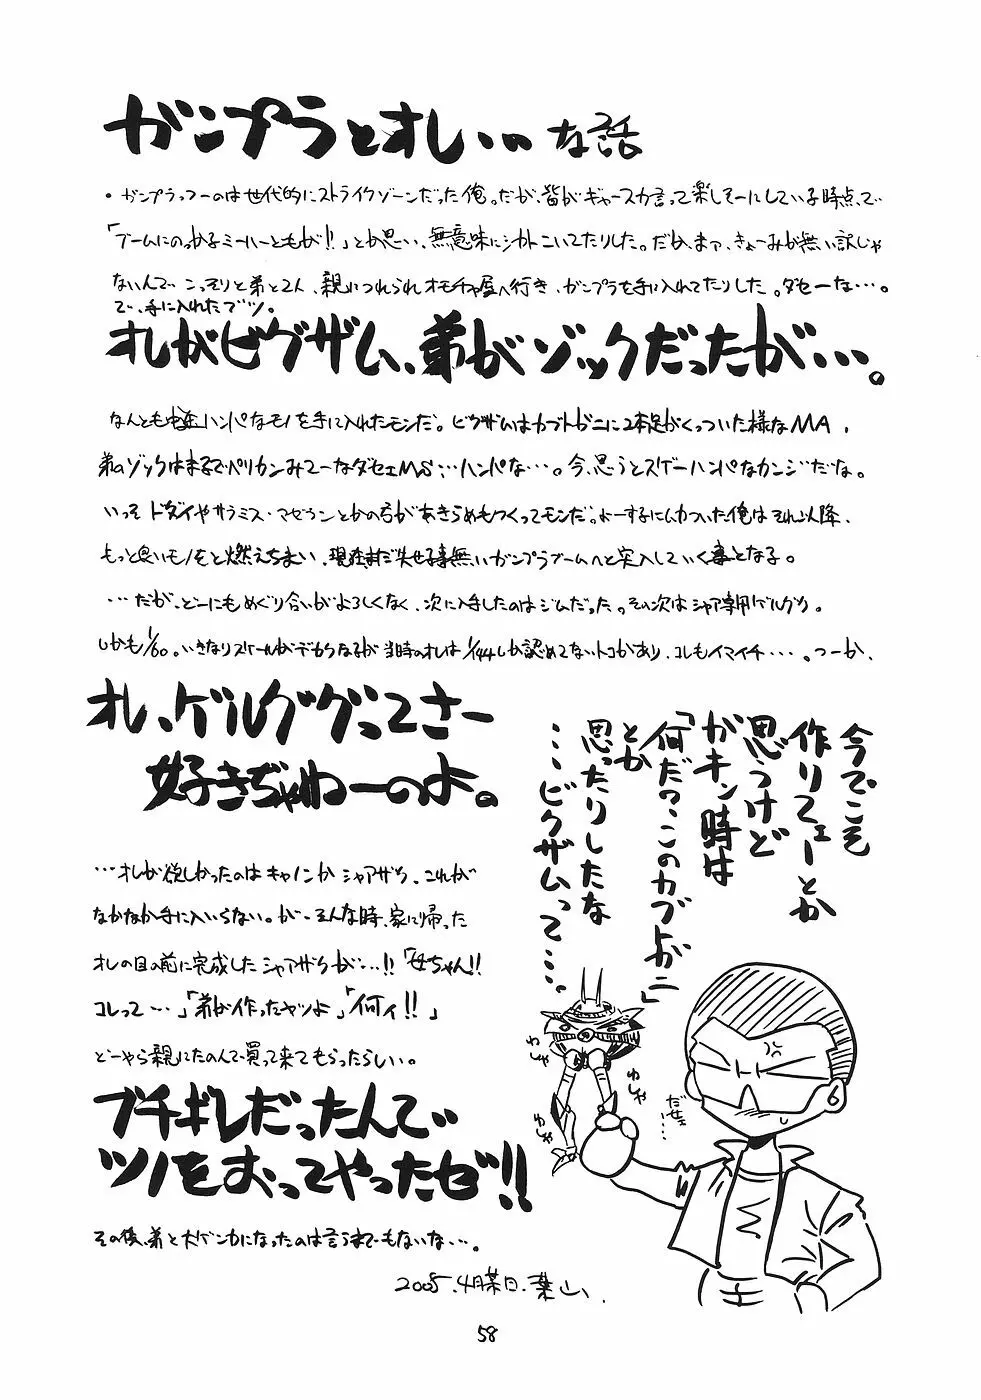 ガンプラとオレ…な話
・ガンプラっつーのは世代的にストライクゾーンだった俺。だが、皆がギャースカ言って楽しそーにしている時点で
「ブームにのっかるミーハーどもが!!」とか思い、無意味にシカトこいてたりした。だが、まァ、きょーみが無い訳じゃ
ないんで こっそりと弟と2人、親につれられオモチャ屋へ行き、ガンプラを手に入れてたりした。ダセーな…。
で、手に入れたブツ。
オレがビグザム、弟がゾックだったが…。
なんとも中途ハンパなモノを手に入れたモンだ。ビグザムはカブトガニに2本足がくっついた様なMA、
弟のゾックはまるでペリカンみてーなダセェMS…ハンパな…。今、思うとスゲーハンパなカンジだな。
いっそ ドダイやサラミス・マゼランとかの方があきらめもつくってモンだ。よーするにムカついた俺はそれ以降、
もっと良いモノをと燃えちまい、現在まだ失せる事無いガンプラブームへと突入していく事となる。
…だが、どーにもめぐり合いがよろしくなく、次に入手したのはジムだった。その次はシャア専用ゲルググ。
しかも1/60。いきなりスケールがデカくなるが当時のオレは1/144しか認めてないトコがあり、コレもイマイチ…。つーか、
オレ、ゲルググってさー
好きぢゃねーのよ。
…オレが欲しかったのはキャノンかシャアザク、これが
なかなか手に入いらない。が、そんな時、家に帰った
オレの目の前に完成したシャアザクが…!!「母ちゃん!!
コレって…」「弟が作ったヤツよ」「何ィ!!」
どーやら親にたのんで買って来てもらったらしい。
ブチギレだったんで
ツノをおってやったゼ!!
その後、弟と大ゲンカになったのは言うまでもないな…。
2005.4月某日.葉山、
今でこそ
作りフェーとか
思うけど
がキン時は
「何だ?このカブトガニ」
とか
思ったりしたな
…ビグザムって…。
わしゃ
わしゃ
わしゃ
わしゃ
だせェ…
58